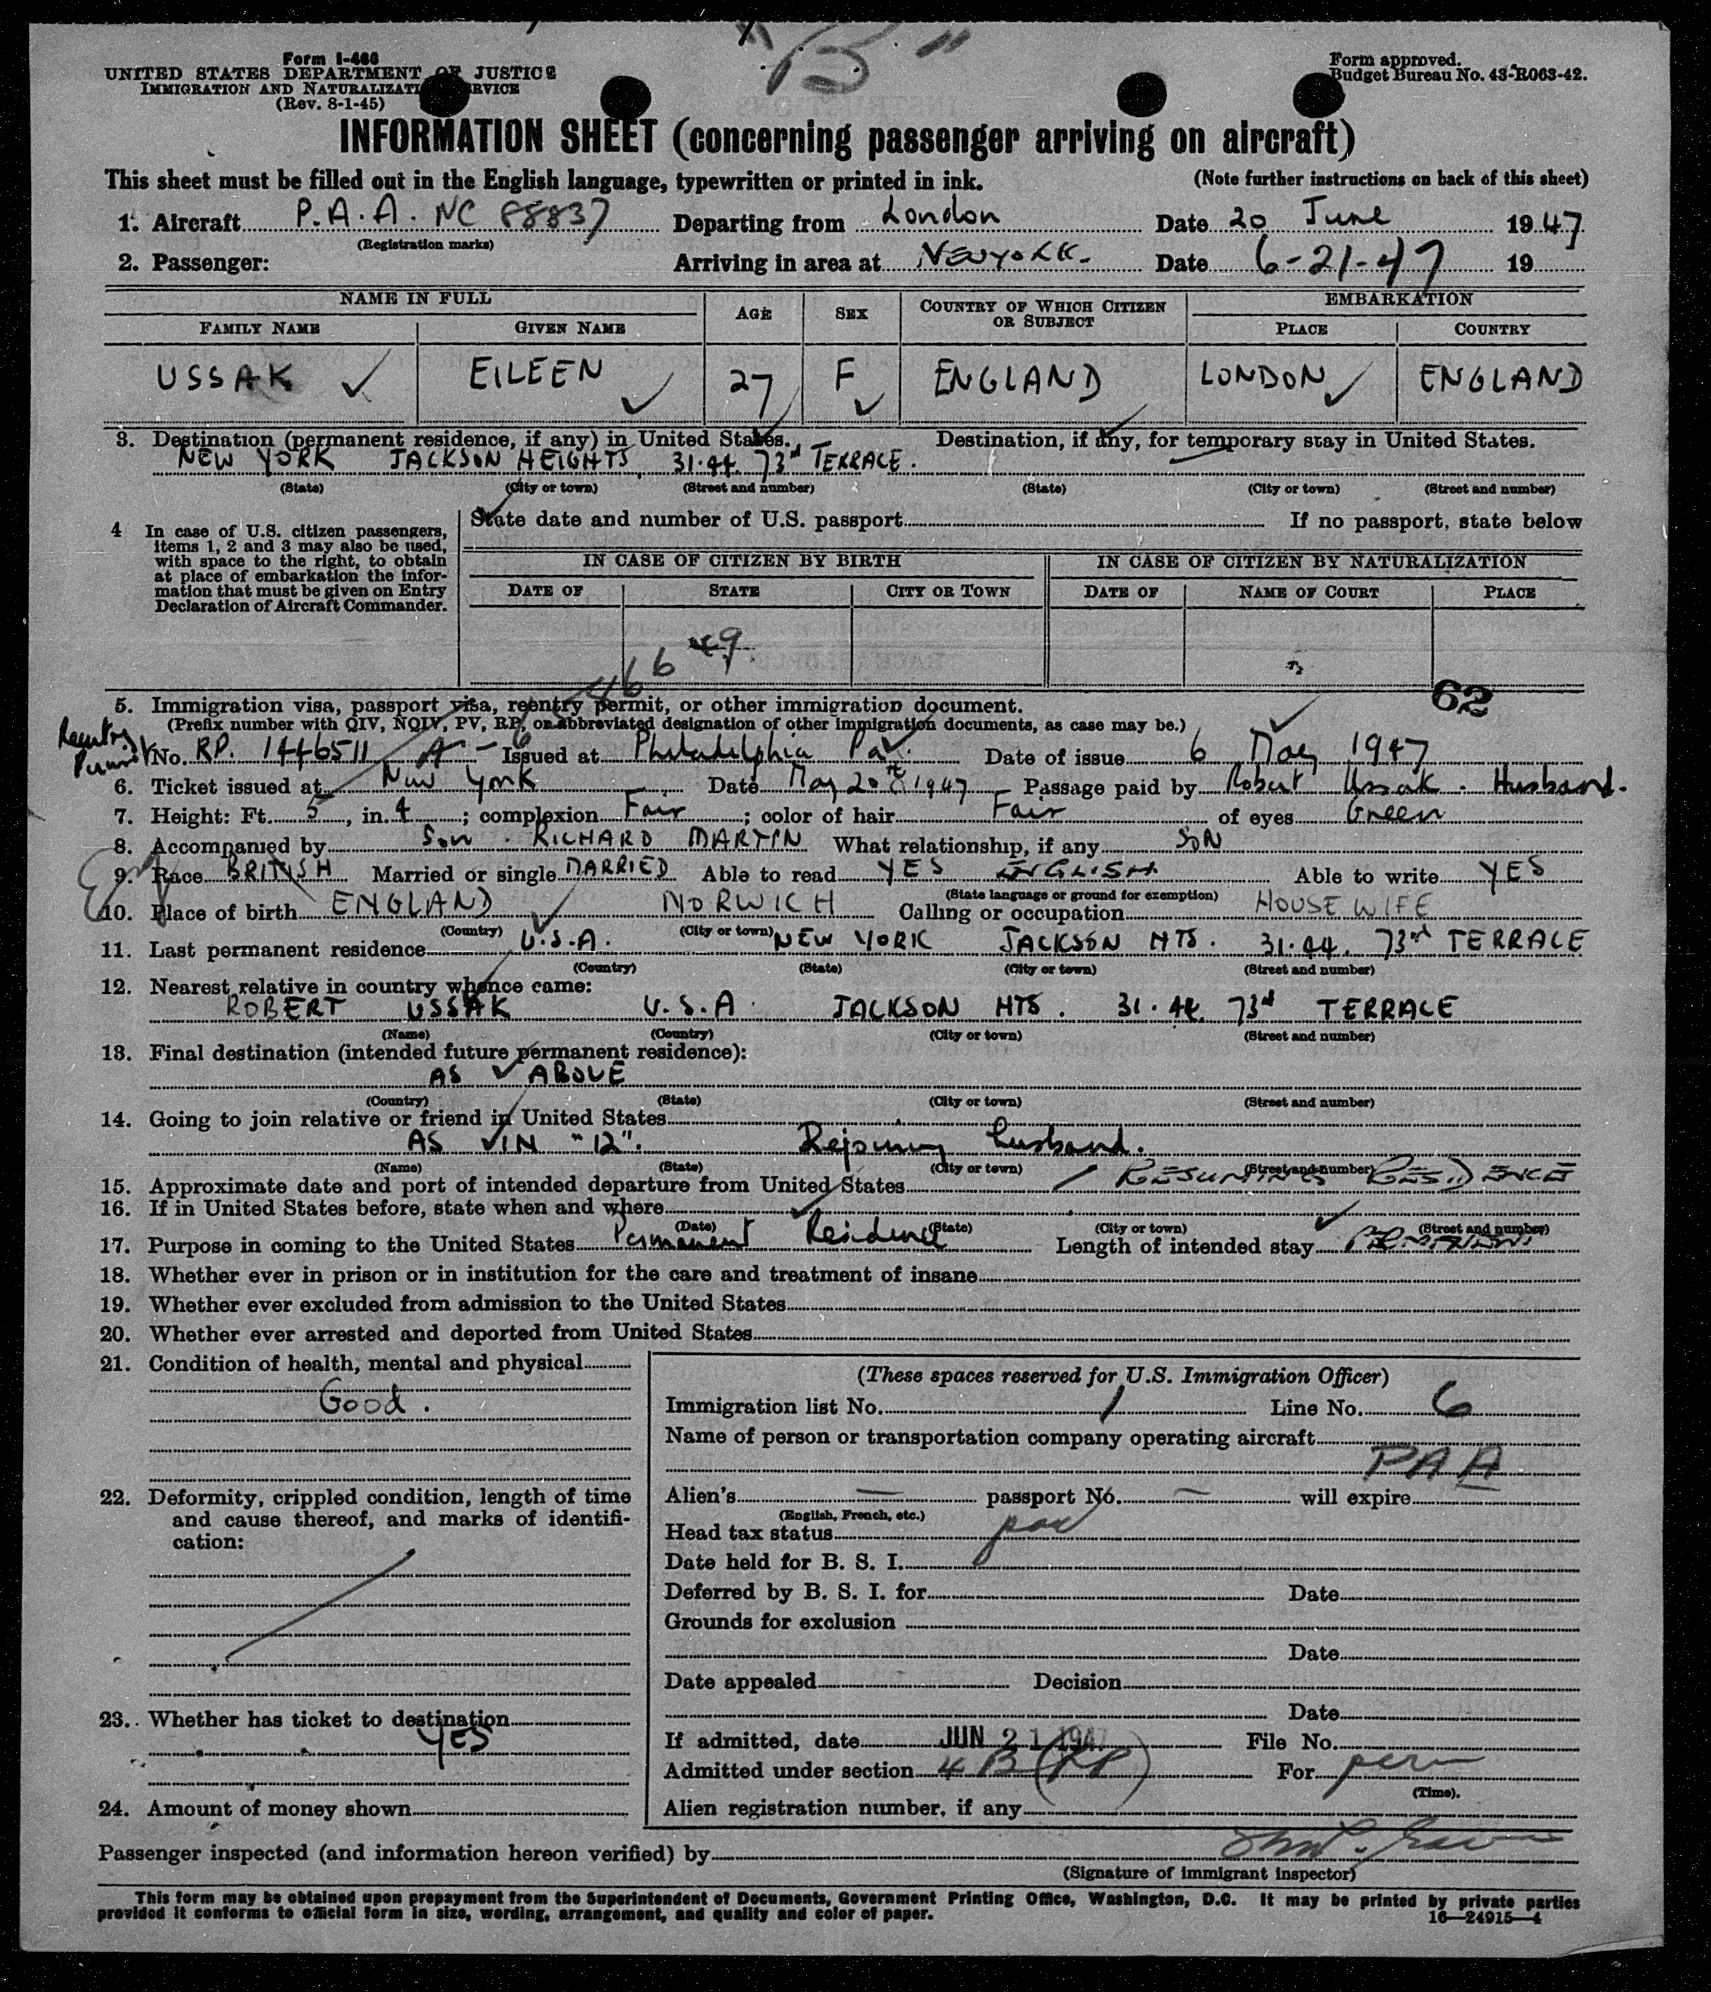 "B"
Form I-466
UNITED STATES DEPARTMENT OF JUSTICE
IMMIGRATION AND NATURALIZATION SERVICE
(Rev. 8-1-45)
Form approved.
Budget Bureau No. 43-R063-42.
INFORMATION SHEET (concerning passenger arriving on aircraft)
This sheet must be filled out in the English language, typewritten or printed in ink. (Note further instructions on back of this sheet)
1. Aircraft P.A.A. NC 88837 Departing from London Date 20 June 1947
(Registration marks)
2. Passenger: Arriving in area at NEWYORK. Date 6-21-47 19
NAME IN FULL AGE SEX COUNTRY OF WHICH CITIZEN OR SUBJECT EMBARKATION
FAMILY NAME GIVEN NAME PLACE COUNTRY
USSAK EILEEN 27 F ENGLAND LONDON ENGLAND
3. Destination (permanent residence, if any) in United States. Destination, if any, for temporary stay in United States.
NEW YORK JACKSON HEIGHTS, 31.44. 73rd TERRACE.
(State) (City or town) (Street and number) (State) (City or town) (Street and number)
4 In case of U.S. citizen passengers, items 1, 2 and 3 may also be used, with space to the right, to obtain at place of embarkation the information that must be given on Entry Declaration of Aircraft Commander.
State date and number of U.S. passport If no passport, state below
IN CASE OF CITIZEN BY BIRTH IN CASE OF CITIZEN BY NATURALIZATION
DATE OF STATE CITY OR TOWN DATE OF NAME OF COURT PLACE
62
5. Immigration visa, passport visa, reentry permit, or other immigration document.
(Prefix number with QIV, NQIV, PV, RP, or abbreviated designation of other immigration documents, as case may be.)
Reentry Permit No. RP. 1446511 Issued at Philadelphia Pa. Date of issue 6 May 1947
6. Ticket issued at New York Date May 20th 1947 Passage paid by Robert Ussak. Husband.
7. Height: Ft. 5, in. 4; complexion Fair; color of hair Fair of eyes Green
8. Accompanied by Son. RICHARD MARTIN What relationship, if any SON
9. Race BRITISH Married or single MARRIED Able to read YES ENGLISH Able to write YES
(State language or ground for exemption)
10. Place of birth ENGLAND NORWICH Calling or occupation HOUSEWIFE
(Country) (City or town)
11. Last permanent residence U.S.A. NEW YORK JACKSON HTS. 31.44. 73rd TERRACE
(Country) (State) (City or town) (Street and number)
12. Nearest relative in country whence came:
ROBERT USSAK U.S.A. JACKSON HTS. 31.44. 73rd TERRACE
(Name) (Country) (City or town) (Street and number)
13. Final destination (intended future permanent residence):
AS ABOVE
(Country) (State) (City or town) (Street and number)
14. Going to join relative or friend in United States
AS IN "12". Rejoining husband.
(Name) (State) (City or town) (Street and number)
15. Approximate date and port of intended departure from United States RESUMING RESIDENCE
16. If in United States before, state when and where
(Date) (State) (City or town) (Street and number)
17. Purpose in coming to the United States Permanent Residence Length of intended stay PERMANENT
18. Whether ever in prison or in institution for the care and treatment of insane
19. Whether ever excluded from admission to the United States
20. Whether ever arrested and deported from United States
21. Condition of health, mental and physical
Good.
22. Deformity, crippled condition, length of time and cause thereof, and marks of identification:
23. Whether has ticket to destination
YES
24. Amount of money shown
(These spaces reserved for U.S. Immigration Officer)
Immigration list No. 1 Line No. 6
Name of person or transportation company operating aircraft
PAA
Alien's — passport No. — will expire
(English, French, etc.)
Head tax status
Date held for B. S. I.
Deferred by B. S. I. for Date
Grounds for exclusion
Date
Date appealed Decision
Date
If admitted, date JUN 21 1947 File No.
Admitted under section 4 B (RP) For perm
(Time).
Alien registration number, if any
Passenger inspected (and information hereon verified) by
(Signature of immigrant inspector)
This form may be obtained upon prepayment from the Superintendent of Documents, Government Printing Office, Washington, D.C. It may be printed by private parties
provided it conforms to official form in size, wording, arrangement, and quality and color of paper.
16—24915-4